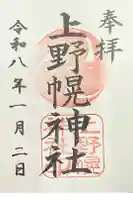 奉拝
上野幌神社
令和八年一月二日
上野幌神社